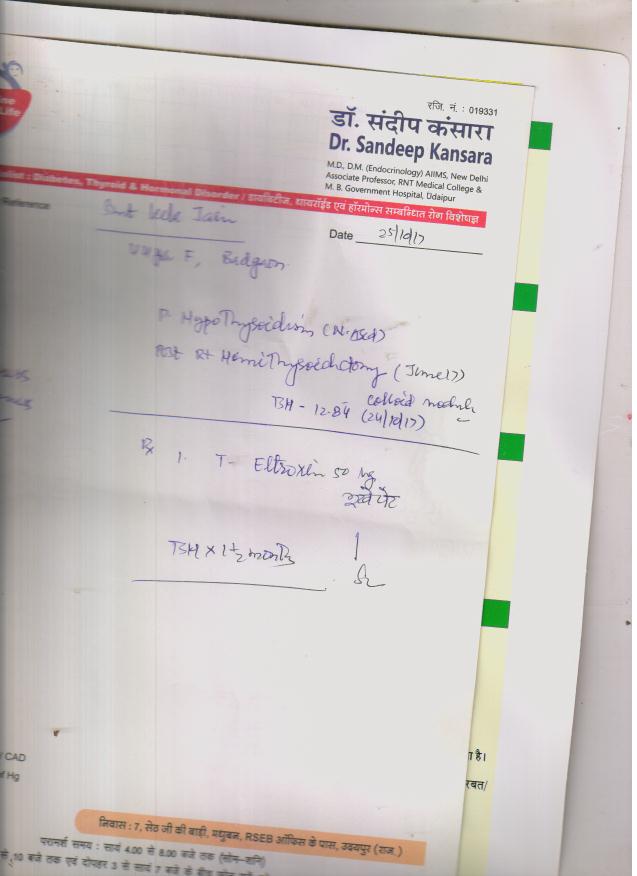 रजि. नं. : 019331
डॉ. संदीप कंसारा
Dr. Sandeep Kansara
M.D., D.M. (Endocrinology) AIIMS, New Delhi
Associate Professor, RNT Medical College &
M. B. Government Hospital, Udaipur
alist : Diabetes, Thyroid & Hormonal Disorder / डायबिटीज, थायरॉईड एवं हॉरमोन्स सम्बन्धित रोग विशेषज्ञ
Reference
Jain
Date 25/10/17
F, Badgaon
Hypothyroidism
Rt Hemithyroidectomy (June 17)
colloid nodule
TSH - 12.84 (24/10/17)
Rx 1. T- Eltroxin 50 mg
भूखे पेट
TSH x 1 1/2 month
CAD
of Hg
ा है।
रबत/
निवास : 7, सेठ जी की बाड़ी, मधुबन, RSEB ऑफिस के पास, उदयपुर (राज.)
परामर्श समय : सायं 4.00 से 8.00 बजे तक (सोम-शनि)
से 10 बजे तक एवं दोपहर 3 से सायं 7 बजे के बीच